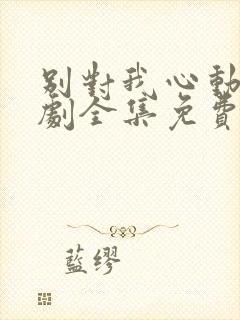 別對我心動
劇全集免費
藍繆